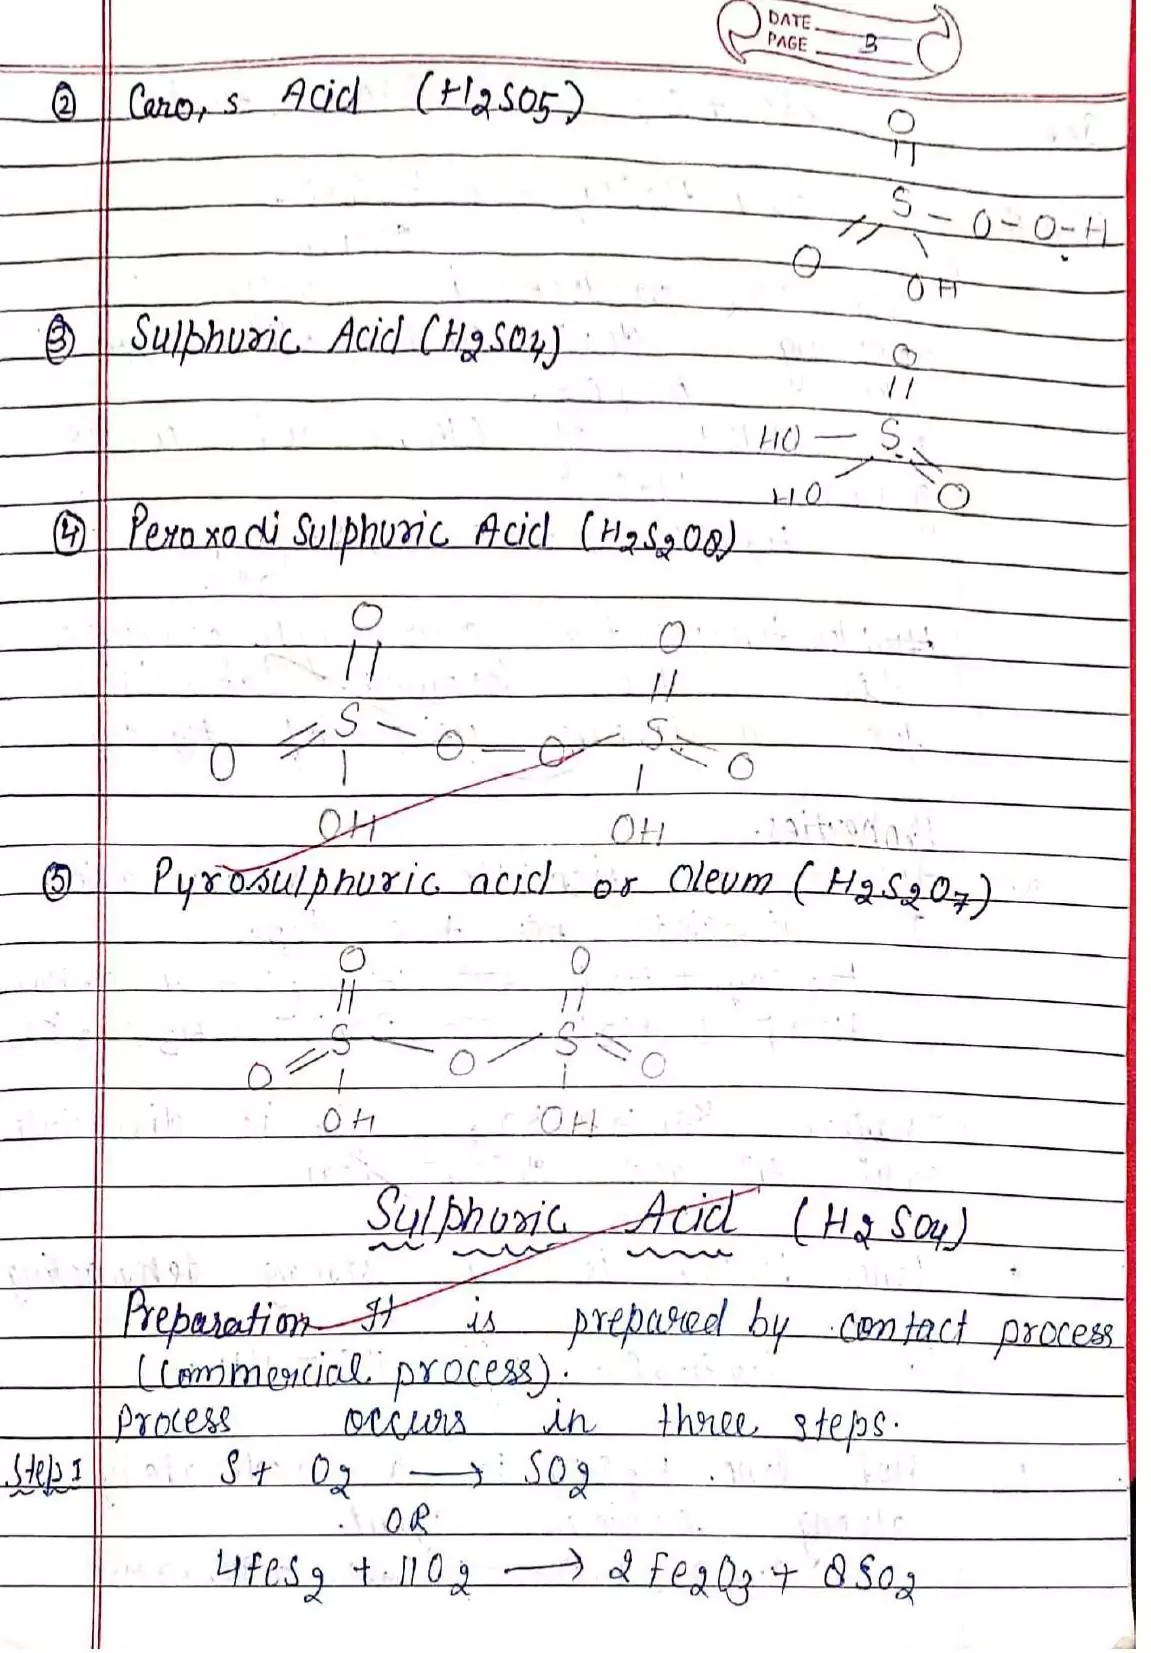 DATE
PAGE B
② Caro,s Acid (H2SO5)
O
S - O - O - H
O
OH
③ Sulphuric Acid (H2SO4)
O
HO — S
HO O
④ Peroxodi Sulphuric Acid (H2S2O8)
O O
S S
O O — O O
OH OH
⑤ Pyrosulphuric acid or Oleum (H2S2O7)
O O
S S
O O O
OH OH
Sulphuric Acid (H2SO4)
Preparation It is prepared by contact process
(Commercial process).
Process occurs in three steps.
Step I S + O2 → SO2
OR
4FeS2 + 11O2 → 2Fe2O3 + 8SO2